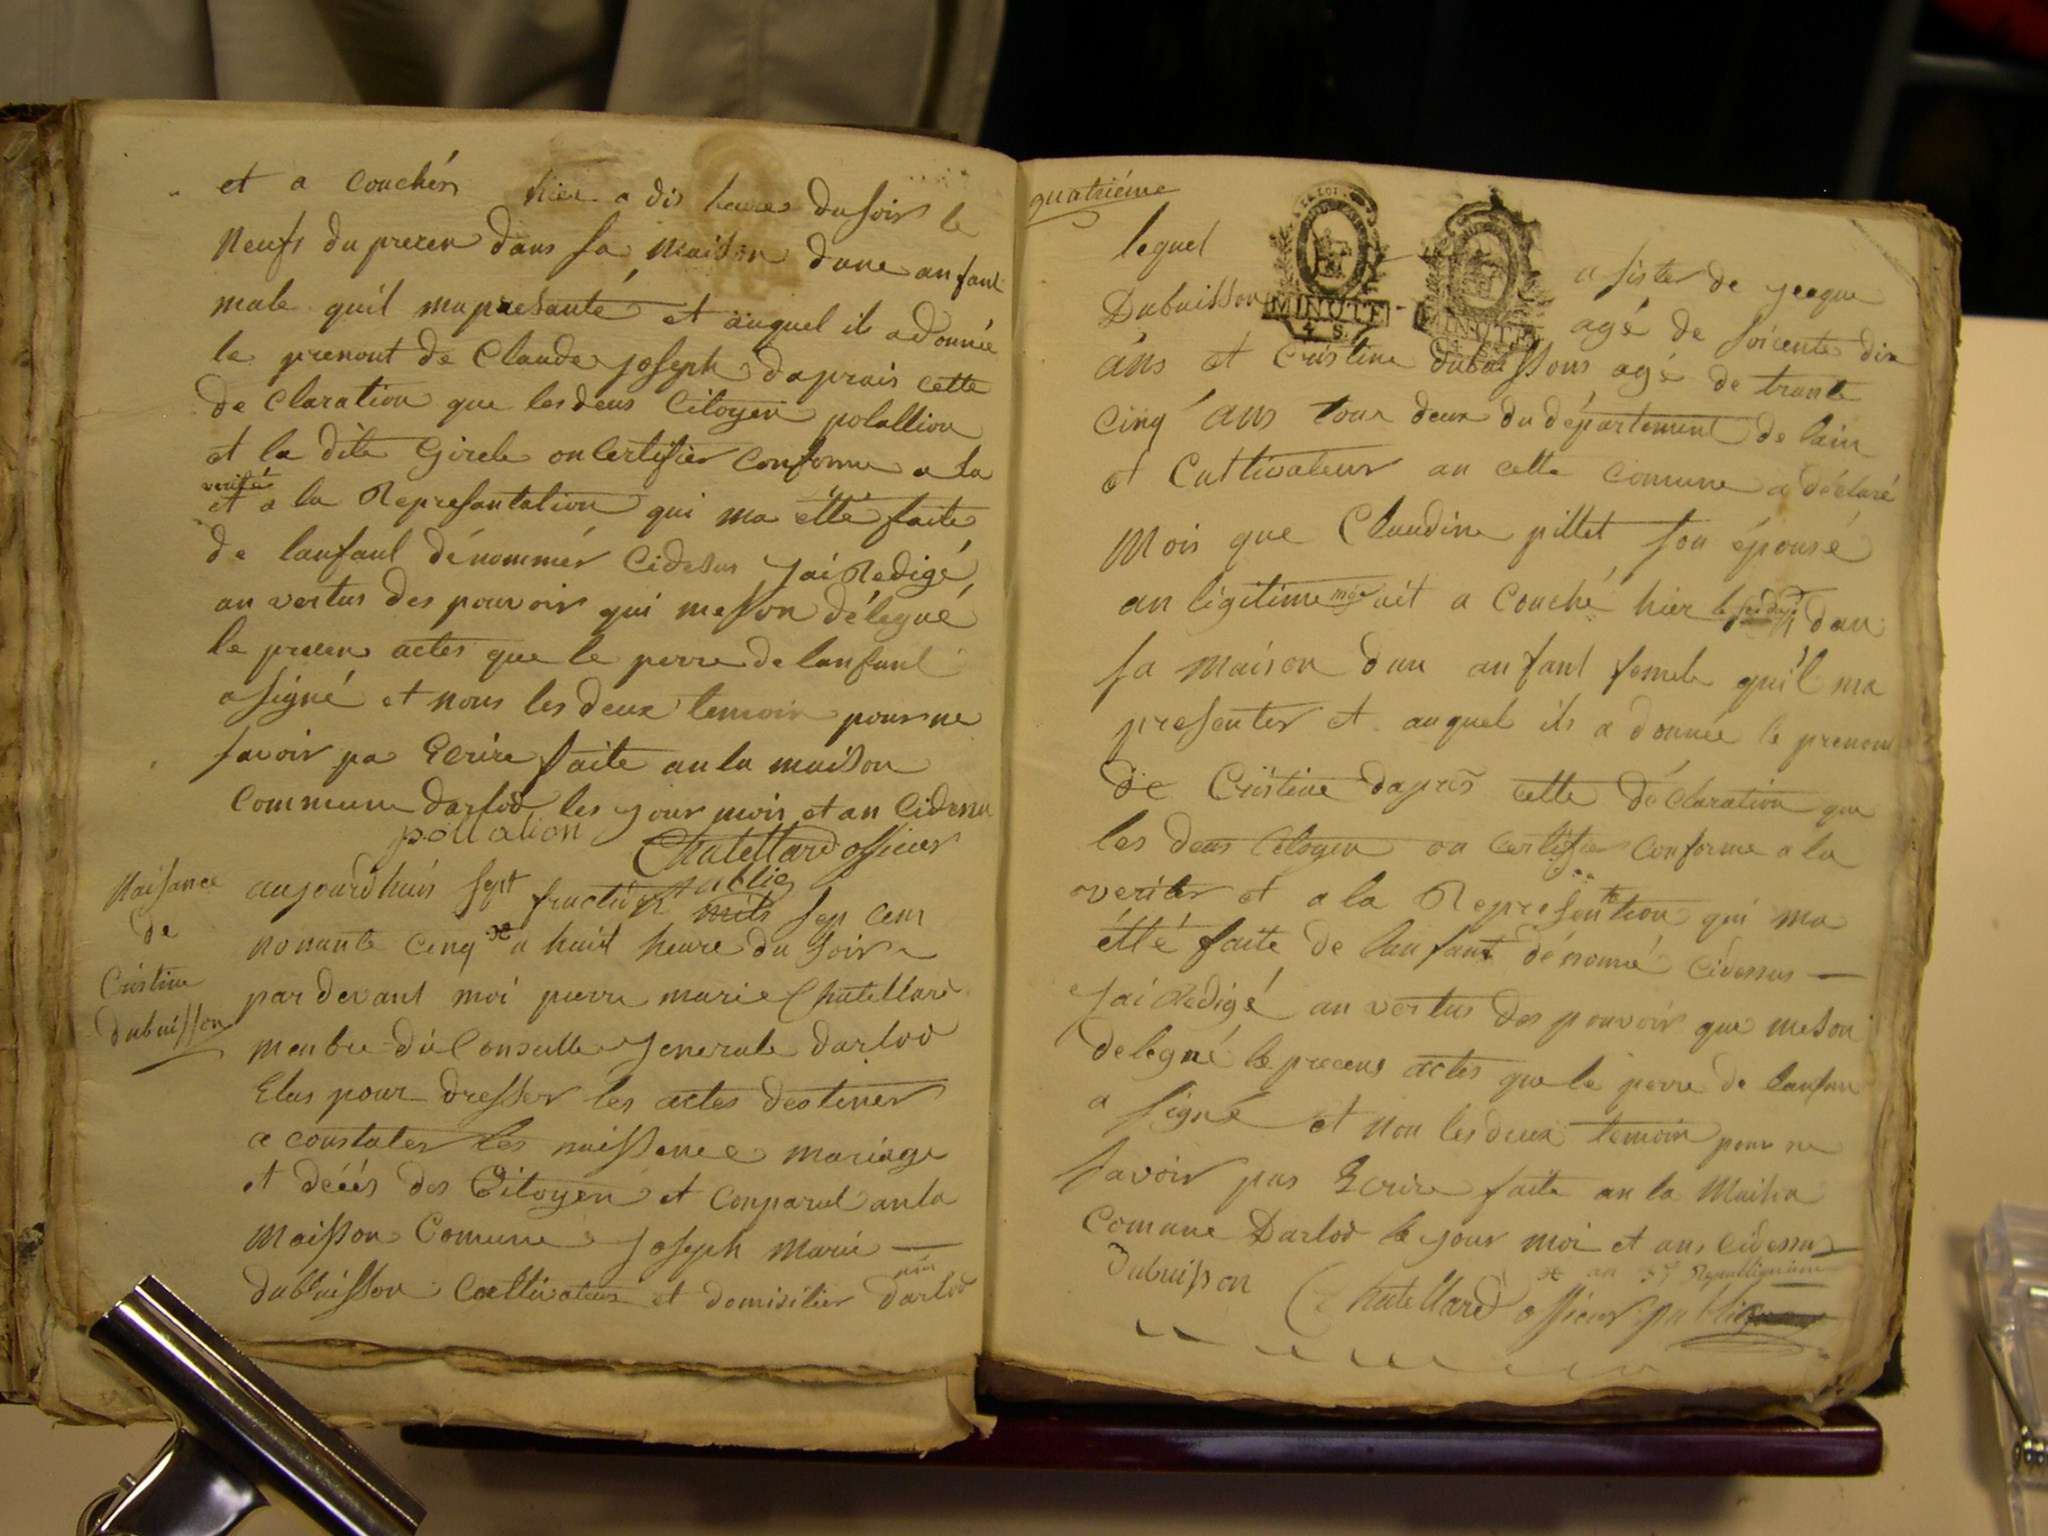 et a couchér hier a dis heure du soir le
neufs du precen dans sa maison dune anfant
male quil ma presanté et auquel ils a donnée
le prenont de Claude joseph daprais cette
de claration que les deus Citoyen polallion
et la dite Girele on Certifier Conforme a la
verité
et a la Represantation qui ma étté faite
de lanfant dénommér Cidesus jai Redigé
an vertus des pouvoir qui me son délegué
le precen actes que le perre de lanfant
a signé et nous les deux temoin pour ne
savoir pa Ecrire faite an la maison
Commune darlod les jour mois et an Cidesus
pollalion
Chatellard officier
public
Naisance
de
Cristine
dubuisson
aujourdhuis sept fructidor mils sep cem
nonante Cinq a huit heure du soir
par devant moi pierre marie Chatellard
menbre du Conselle jenerale darlod
Elus pour dresser les actes destiner
a constater les naissence mariage
et décés des Citoyen et Conparut an la
Maisson Comune joseph marie —
dubbuisson Coeltivateur et domisilier darlod
quatriéme
lequel
Dubuisson a sister de jeaque
MINUTE
4 S.
MINUTE
agé de soicente dix
ans et Cristine dubuissons agé de trante
cinq ans tour deux du département de lain
et Cultivateur an cette comune a déclaré
Mois que Claudine pillet son épouse
an légitime mariage
ait a Couché hier le dan
sa maison dun anfant femele qu'il ma
presenter et auquel ils a donnée le prenom
de Cristine daprés cette déclaration que
les deus Citoyen on certifier conforme a la
veriter et a la Represention qui ma
étté faite de lanfant dénomé cidessus —
Jai Redigé an vertus des pouvoir que me son
delegné le precens actes que le perre de lanfan
a signé et non les deux temoin pour ne
savoir pas Ecrire faite an la Maison
Comune Darlod le jour moi et ans cidessus
an Republiquaine
Dubuisson
Chatellard officier public